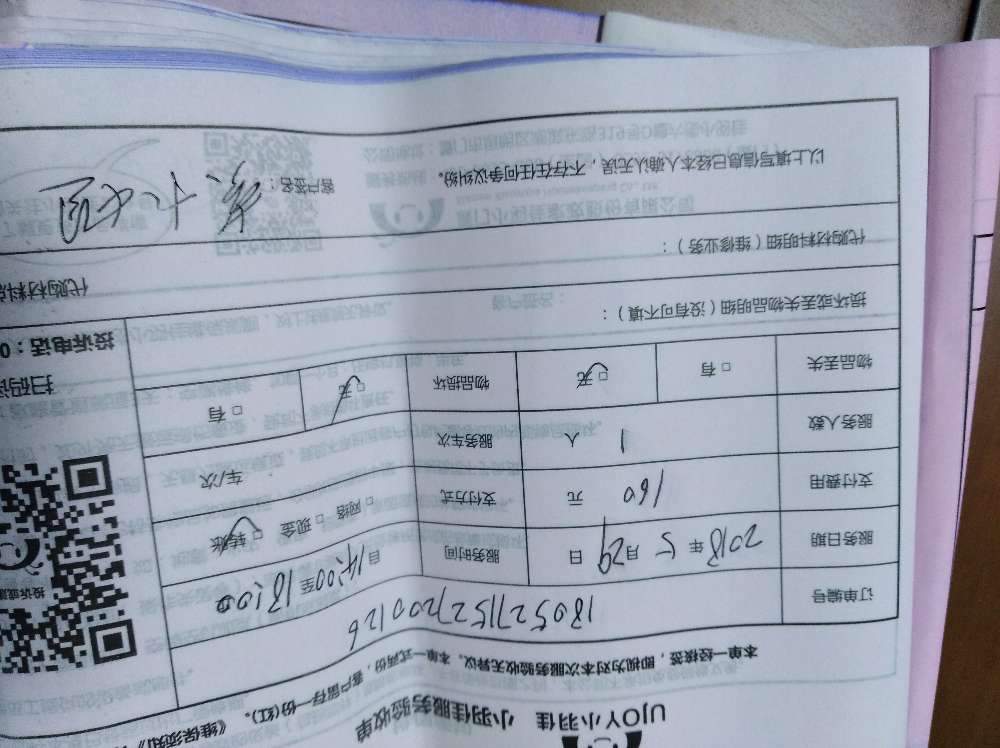 UJOY小羽佳 小羽佳服务验收单
本单一经接签，即视为对本次服务验收无异议。本单一式两份，客户留存一份(红)。《维保须知》
订单编号 180527152720012б
服务日期 2018年5月29日 服务时间 自14:00至18:00
支付费用 160 元 支付方式 □网络 □现金 □转账
服务人数 1 人 服务车次 车/次
物品丢失 □有 □无 物品损坏 □无 □有
损坏或丢失物品明细（没有可不填）：
代购材料明细（维修业务）： 代购材料
以上填写信息已经本人确认无误，不存在任何争议纠纷。 客户签名：
投诉或
扫码
投诉电话：0